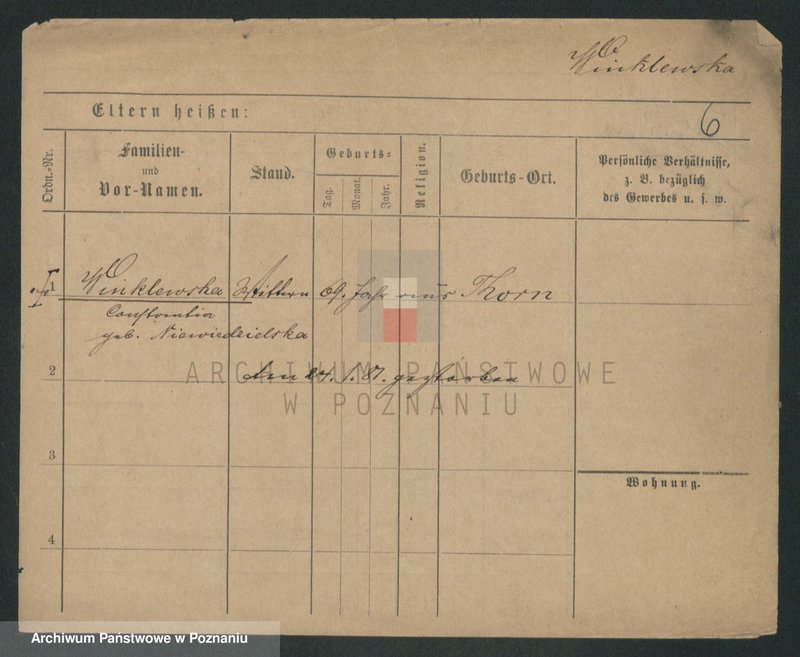 Winklewska
6
Eltern heißen:
Ordn.-Nr.
Familien-
und
Vor-Namen.
Stand.
Geburts-
Tag.
Monat.
Jahr.
Religion.
Geburts-Ort.
Persönliche Verhältnisse,
z. B. bezüglich
des Gewerbes u. s. w.
1 Winklewska Wittwe 69. Jahr aus Thorn
Constantia
geb. Niewiedzielska
2 den 24. 1. 87. gestorben
ARCHIWUM PAŃSTWOWE
W POZNANIU
3
Wohnung.
4
Archiwum Państwowe w Poznaniu